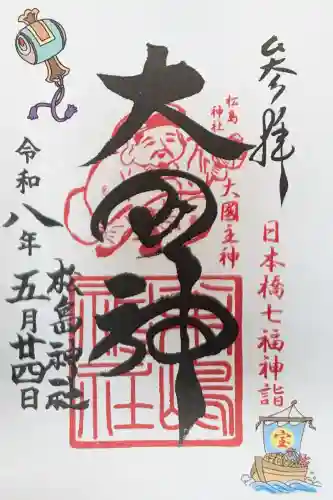 参拝
松島
神社
大國主神
日本橋七福神詣
大国神
松島神社
令和八年
五月廿四日
松島神社
宝